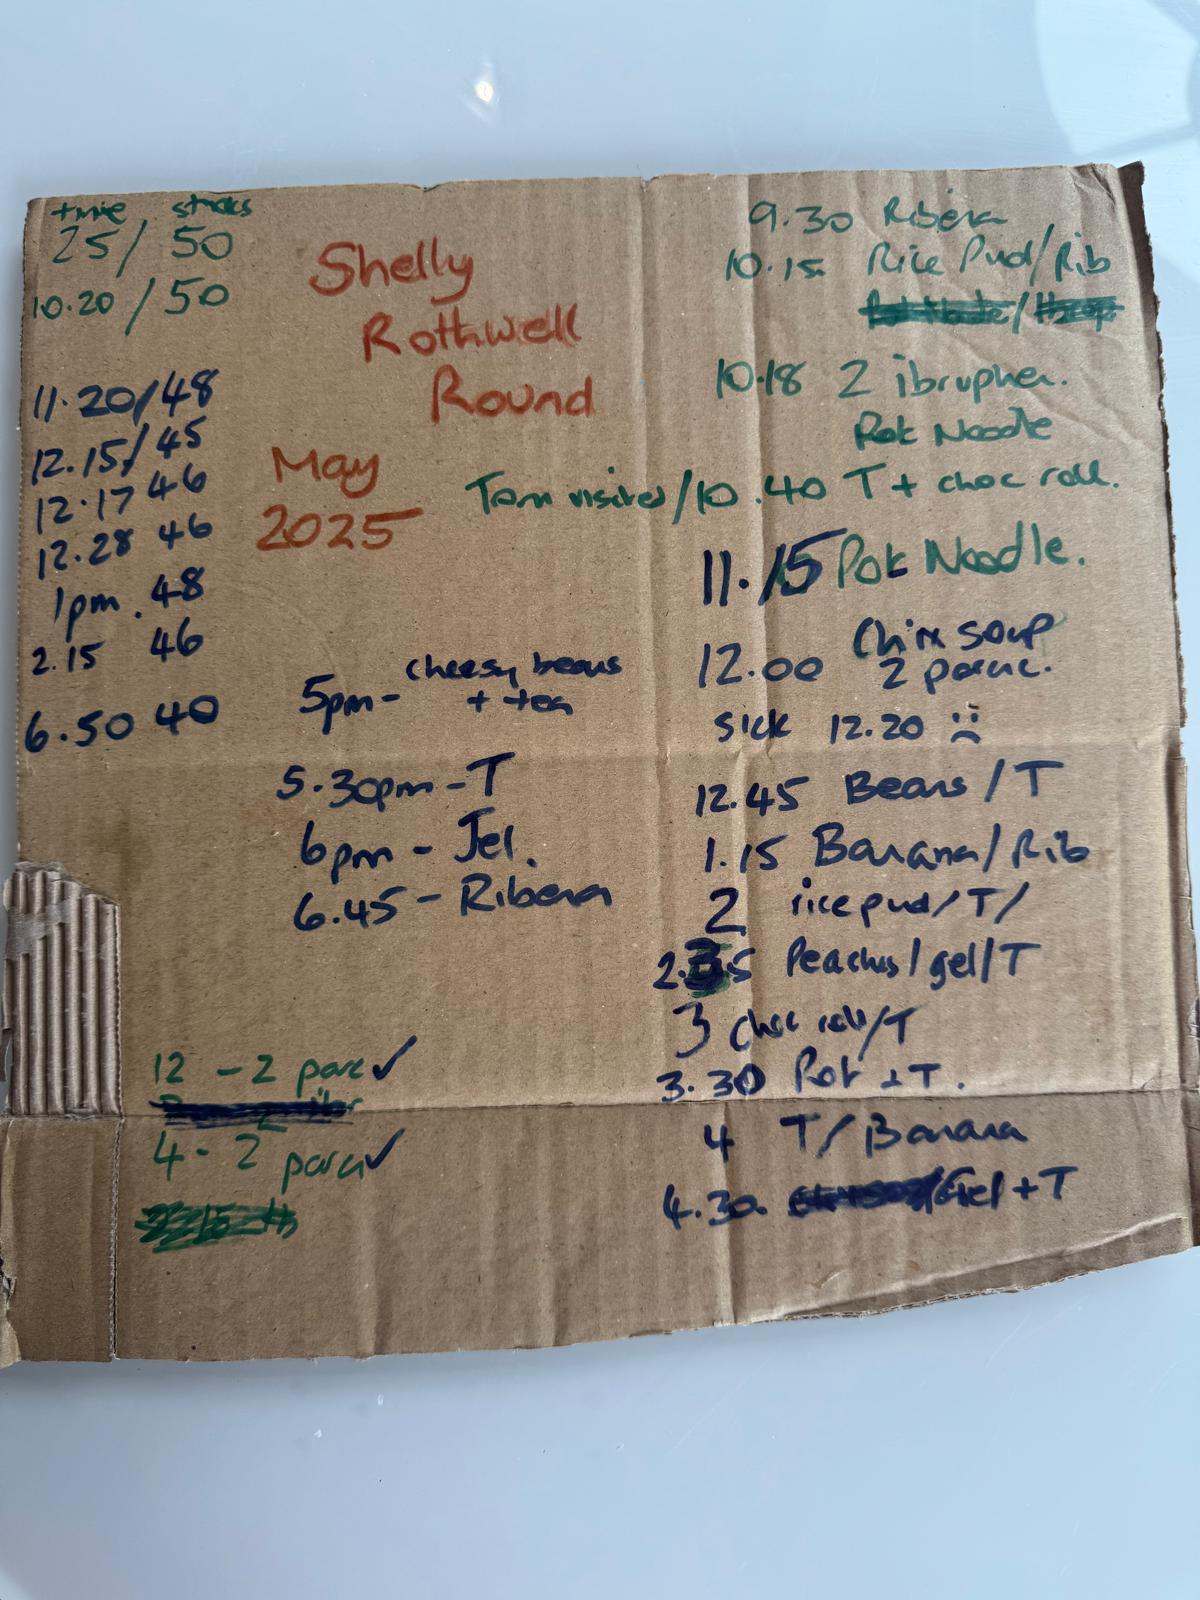 time / strokes
25 / 50
10.20 / 50
11.20/48
12.15/45
12.17 46
12.28 46
1pm . 48
2.15 46
6.50 40
Shelly
Rothwell
Round
May
2025
5pm - cheesy beans
+ tea
5.30pm - T
6pm - Jel.
6.45 - Ribena
12 - 2 parac ✓
4 - 2 parac ✓
9.30 Ribena
10.15 Rice Pud/Rib
10.18 2 ibruphen.
Pot Noodle
Tom visited/10.40 T + choc roll.
11.15 Pot Noodle.
12.00 Chix soup
2 parac.
sick 12.20 :(
12.45 Beans / T
1.15 Banana/Rib
2 rice pud/T/
2.35 Peaches/gel/T
3 choc roll/T
3.30 Pot + T.
4 T/Banana
4.30. Gel + T